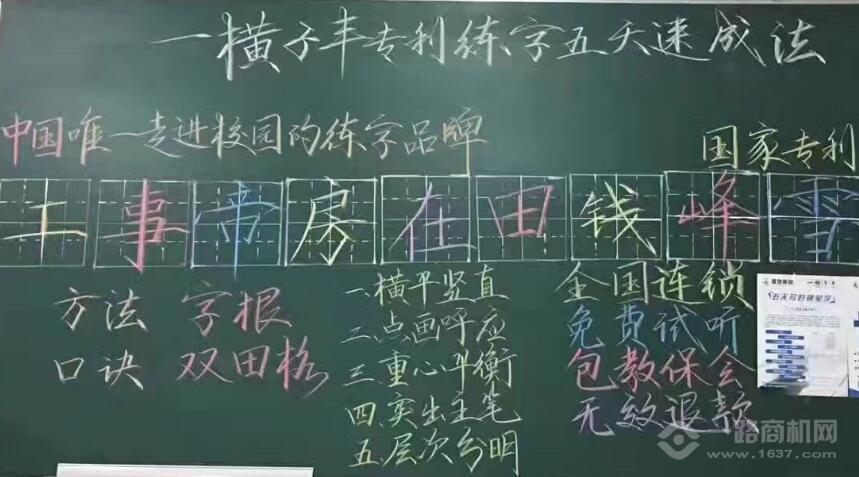 一横子丰专利练字五天速成法
中国唯一走进校园的练字品牌
国家专利
工事帝房在田钱峰雪
方法 字根
口诀 双田格
一.横平竖直
二.点画呼应
三.重心平衡
四.突出主笔
五.层次分明
全国连锁
免费试听
包教保会
无效退款
五天写好硬笔字
一路商机网
www.1637.com